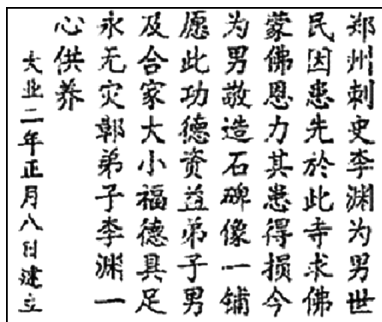 郑州刺史李渊为男世
民因患先於此寺求佛
蒙佛恩力其患得损今
为男敬造石碑像一铺
愿此功德资益弟子男
及合家大小福德具足
永无灾鄣弟子李渊一
心供养
大业二年正月八日建立